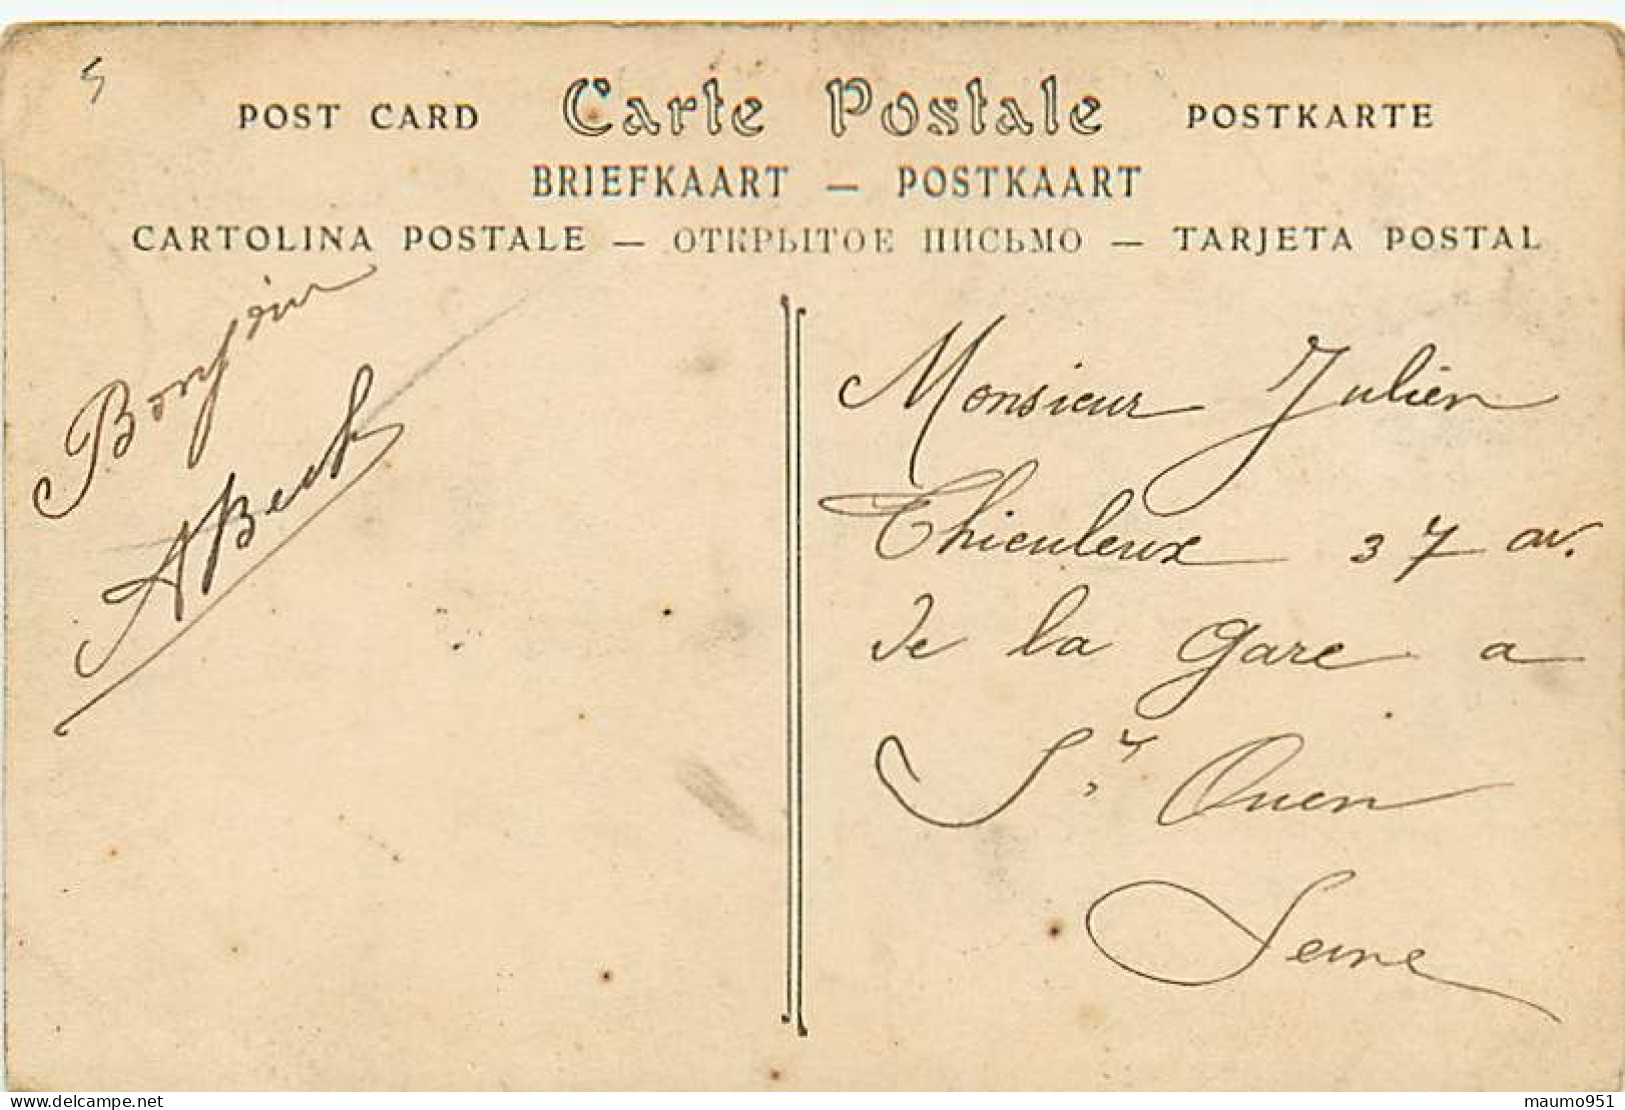 5
POST CARD Carte Postale POSTKARTE
BRIEFKAART — POSTKAART
CARTOLINA POSTALE — ОТКРЫТОЕ ПИСЬМО — TARJETA POSTAL
Bonjour
ABert
Monsieur Julien
Thieuleux 37 av.
de la gare a
St Ouen
Seine
delcampe.net
maumo951